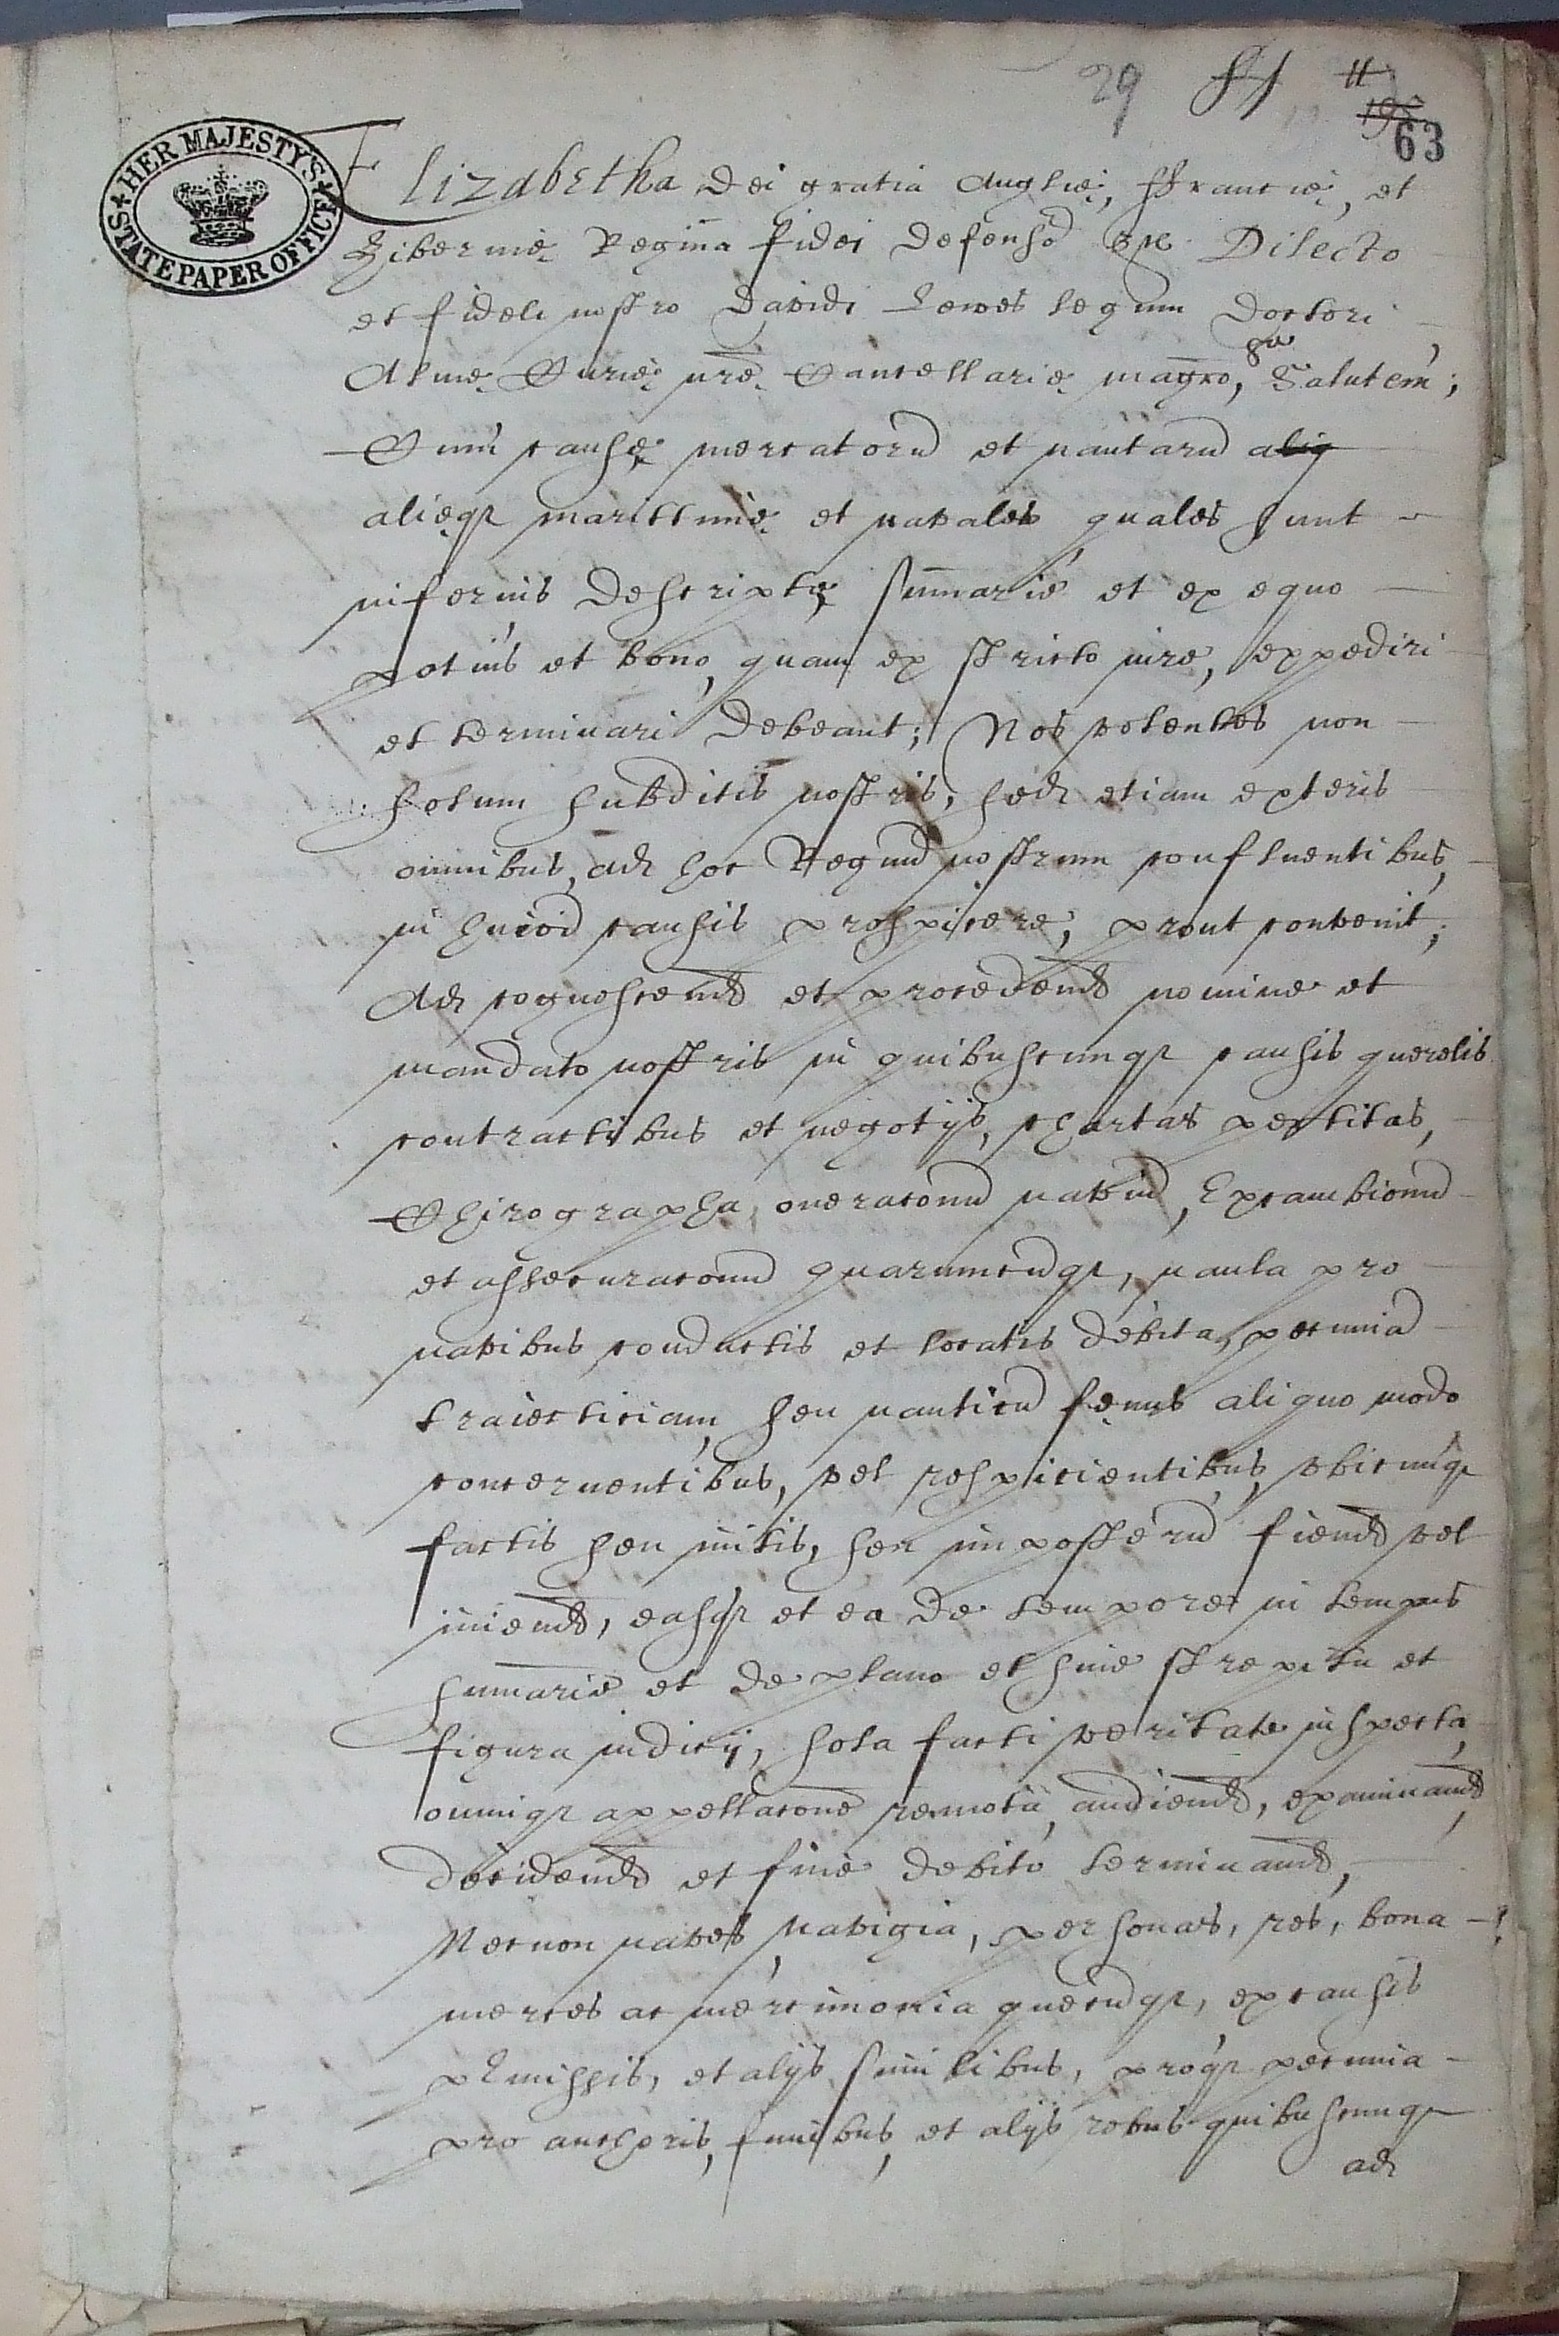 29 81 11
193
63
HER MAJESTY'S STATE PAPER OFFICE
Elizabetha Dei gratia Anglię, ffrancię, et
Hibernię Regina fidei defensor &c Dilecto
et fideli nostro Davidi Lewes legum Doctori,
Almę Curię nrę Cancellarię magro, Salutem;
Cum causę mercatorū et nautarū aliq
alięq maritimę et navales, quales sunt
inferius descriptę, sūmarie et ex equo
potius et bono, quam ex stricto iure, expediri
et terminari debeant; Nos volentes non
solum subditis nostris, sed etiam exteris
omnibus, ad hoc Regnū nostrum confluentibus,
in huiōi causis prospicere, prout convenit;
Ad cognoscend et procedend nomine et
mandato nostris in quibuscunq causis querelis
contractibus et negotijs, chartas partitas,
Chirographa, oneraconū naviū, Excambionū
et assecuraconū quarumcūq, naula pro
navibus conductis et locatis debita, pecuniā
traiecticiam, seu nauticū fęnus aliquo modo
concernentibus, vel respicientibus, vbicunq
factis seu initis, seu imposterū fiend vel
iniend, easq et ea de tempore in tempus
sūmarie et de plano et sine strepitu et
figura iudicij, sola facti veritate inspecta,
omniq appellacone remota, audiend, examinand,
decidend et fine debito terminand,
Necnon naves, Navigia, personas, res, bona
merces ac mercimonia quecūq, ex causis
pmissis, et alijs similibus, proq pecunia
pro anchoris, funibus, et alijs rebus quibuscunq
ad